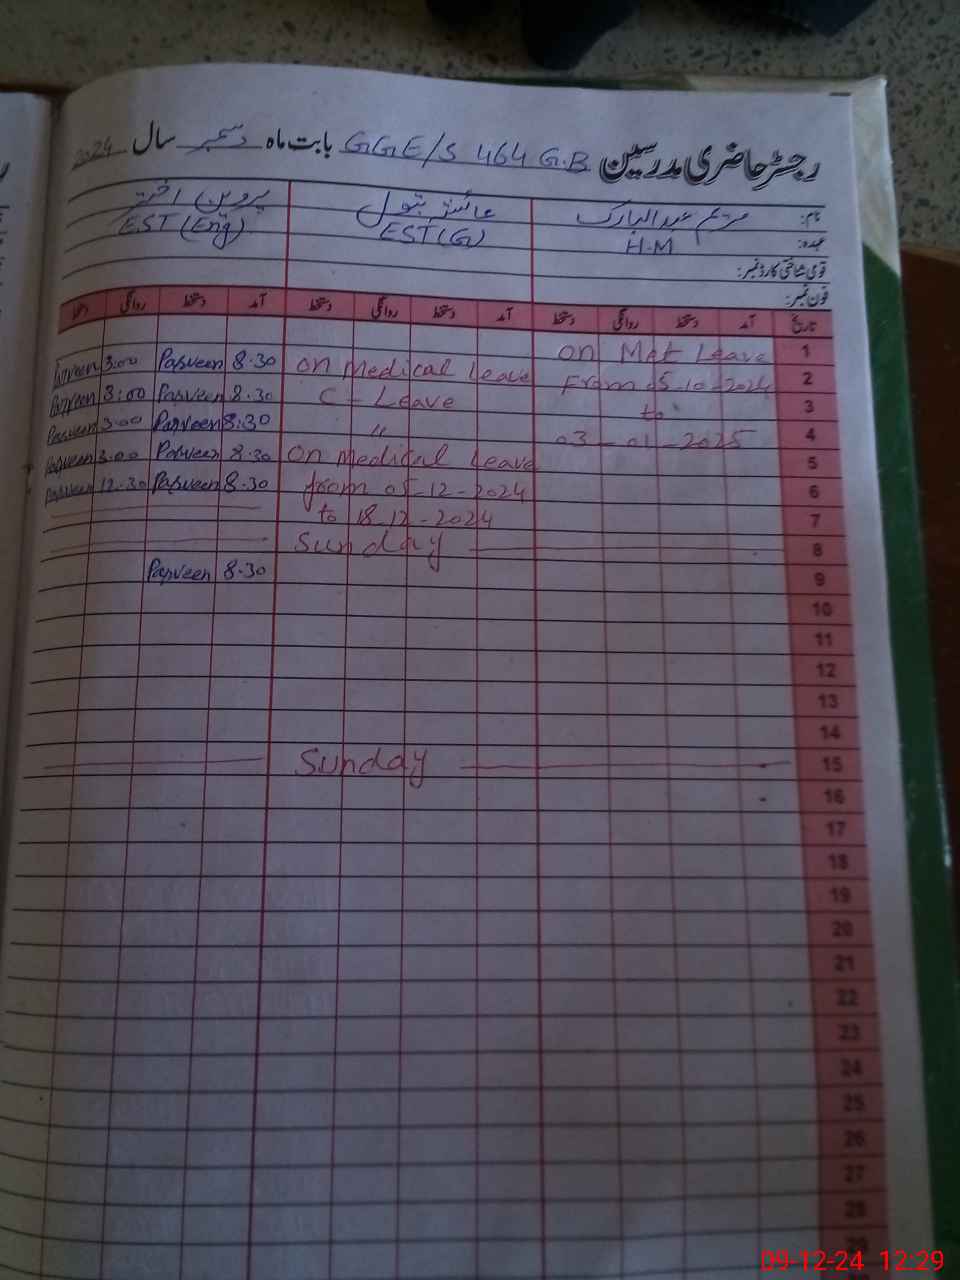 رجسٹر حاضری مدرسین G.G.E/S 464 G.B بابت ماہ دسمبر سال 2024
نام: مریم عبدالمبارک عائشہ بتول پروین اختر
عہدہ: H.M EST(G) EST(Eng)
قومی شناختی کارڈ نمبر:
فون نمبر:
تاریخ آمد دستخط روانگی دستخط آمد دستخط روانگی دستخط آمد دستخط روانگی دستخط
1 On Met Leave
2 From 05-10-2024 On Medical Leave 8.30 Parveen 3:00 Parveen
3 to C - Leave 8.30 Parveen 3:00 Parveen
4 03-01-2025 " 8:30 Parveen 3:00 Parveen
5 On Medical Leave 8.30 Parveen 3:00 Parveen
6 from 05-12-2024 8.30 Parveen 12.30 Parveen
7 to 18-12-2024
8 Sunday
9 8.30 Parveen
10
11
12
13
14
15 Sunday
16
17
18
19
20
21
22
23
24
25
26
27
28
29
09-12-24 12:29